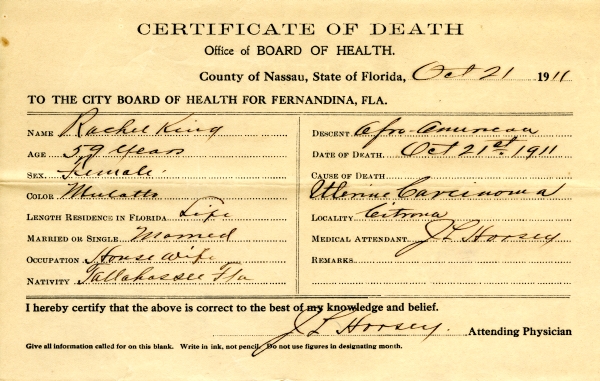 CERTIFICATE OF DEATH
Office of BOARD OF HEALTH.
County of Nassau, State of Florida, Oct 21 1911
TO THE CITY BOARD OF HEALTH FOR FERNANDINA, FLA.
NAME Rachel King
AGE 59 Years
SEX. Female.
COLOR Mulatto
LENGTH RESIDENCE IN FLORIDA Life
MARRIED OR SINGLE Married
OCCUPATION House wife
NATIVITY Tallahassee Fla
DESCENT Afro-American
DATE OF DEATH. Oct 21st 1911
CAUSE OF DEATH
Uterine Carcinoma
LOCALITY Citrona
MEDICAL ATTENDANT. J L Horsey
REMARKS
I hereby certify that the above is correct to the best of my knowledge and belief.
J L Horsey. Attending Physician
Give all information called for on this blank. Write in ink, not pencil. Do not use figures in designating month.